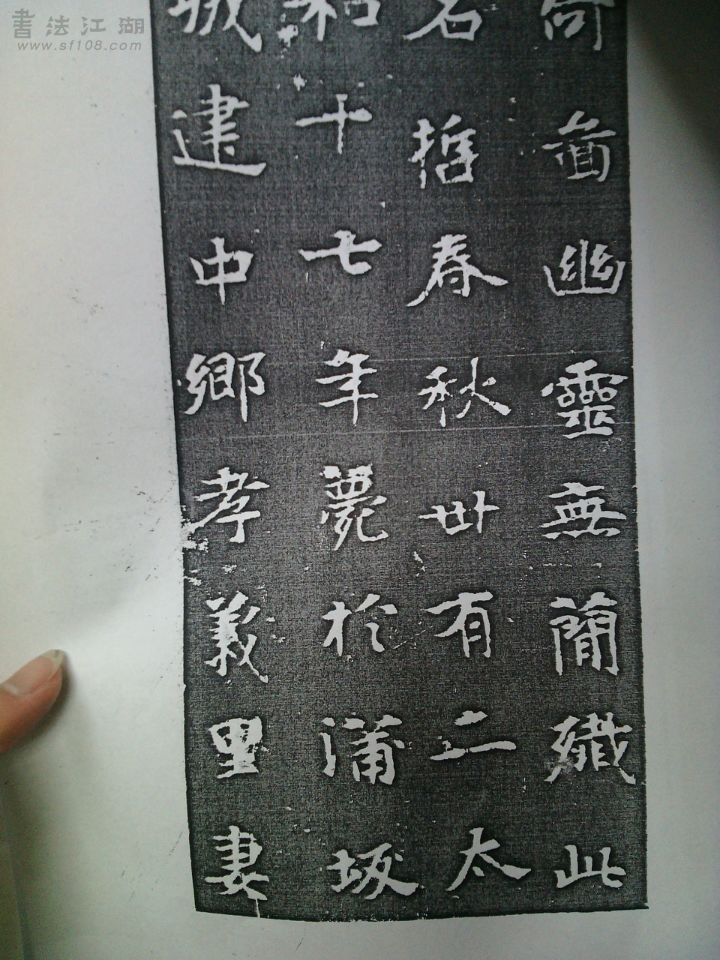 書法江湖
www.sf108.com
啚幽靈無簡殲此
名哲春秋卅有二太
和十七年薨於蒲坂
城建中鄉孝義里妻